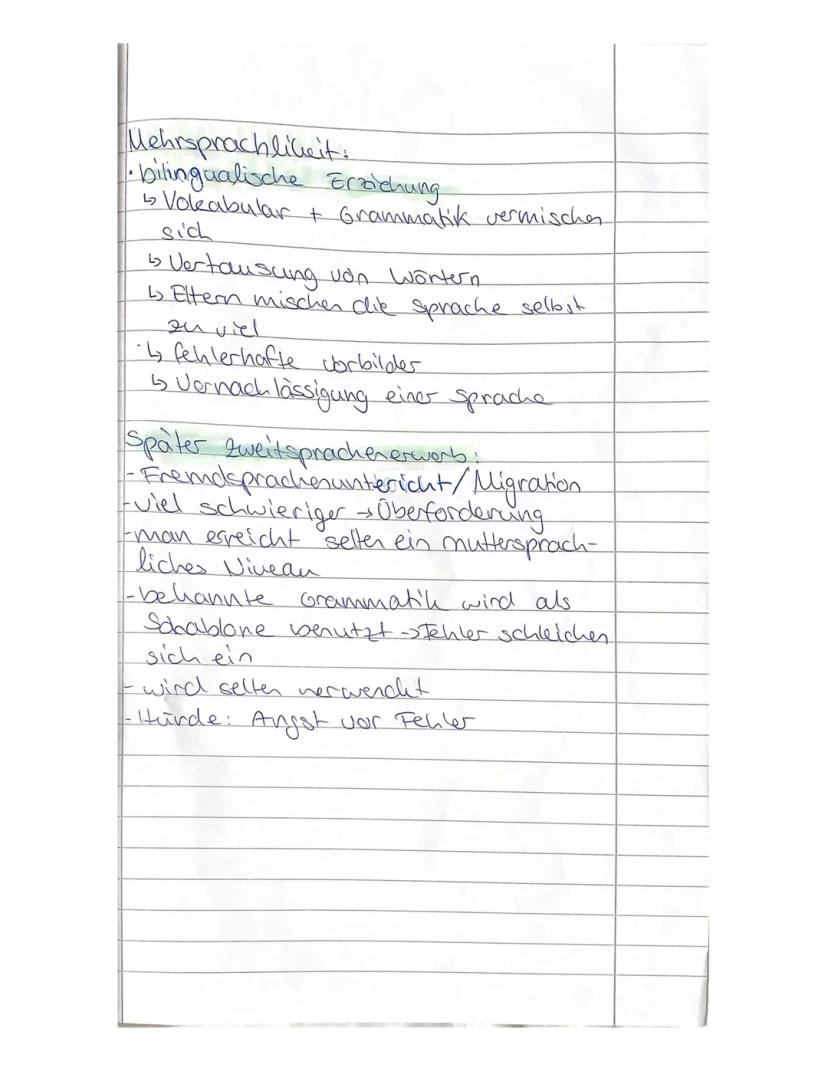 Mehrsprachlikeit:
• bilingualische Erziehung
↳ Vokabular + Grammatik vermischen
sich
↳ Vertausung von Wörtern
↳ Eltern mischen die Sprache selbst
zu viel
↳ fehlerhafte Vorbilder
↳ Vernachlässigung einer Sprache
Später Zweitsprachenerwerb:
- Fremdsprachenuntericht/Migration
- viel schwieriger → Überforderung
- man erreicht selten ein muttersprach-
liches Niveau
- bekannte Grammatik wird als
Schablone benutzt → Fehler schleichen
sich ein
- wird selten verwendet
- Hürde: Angst vor Fehler